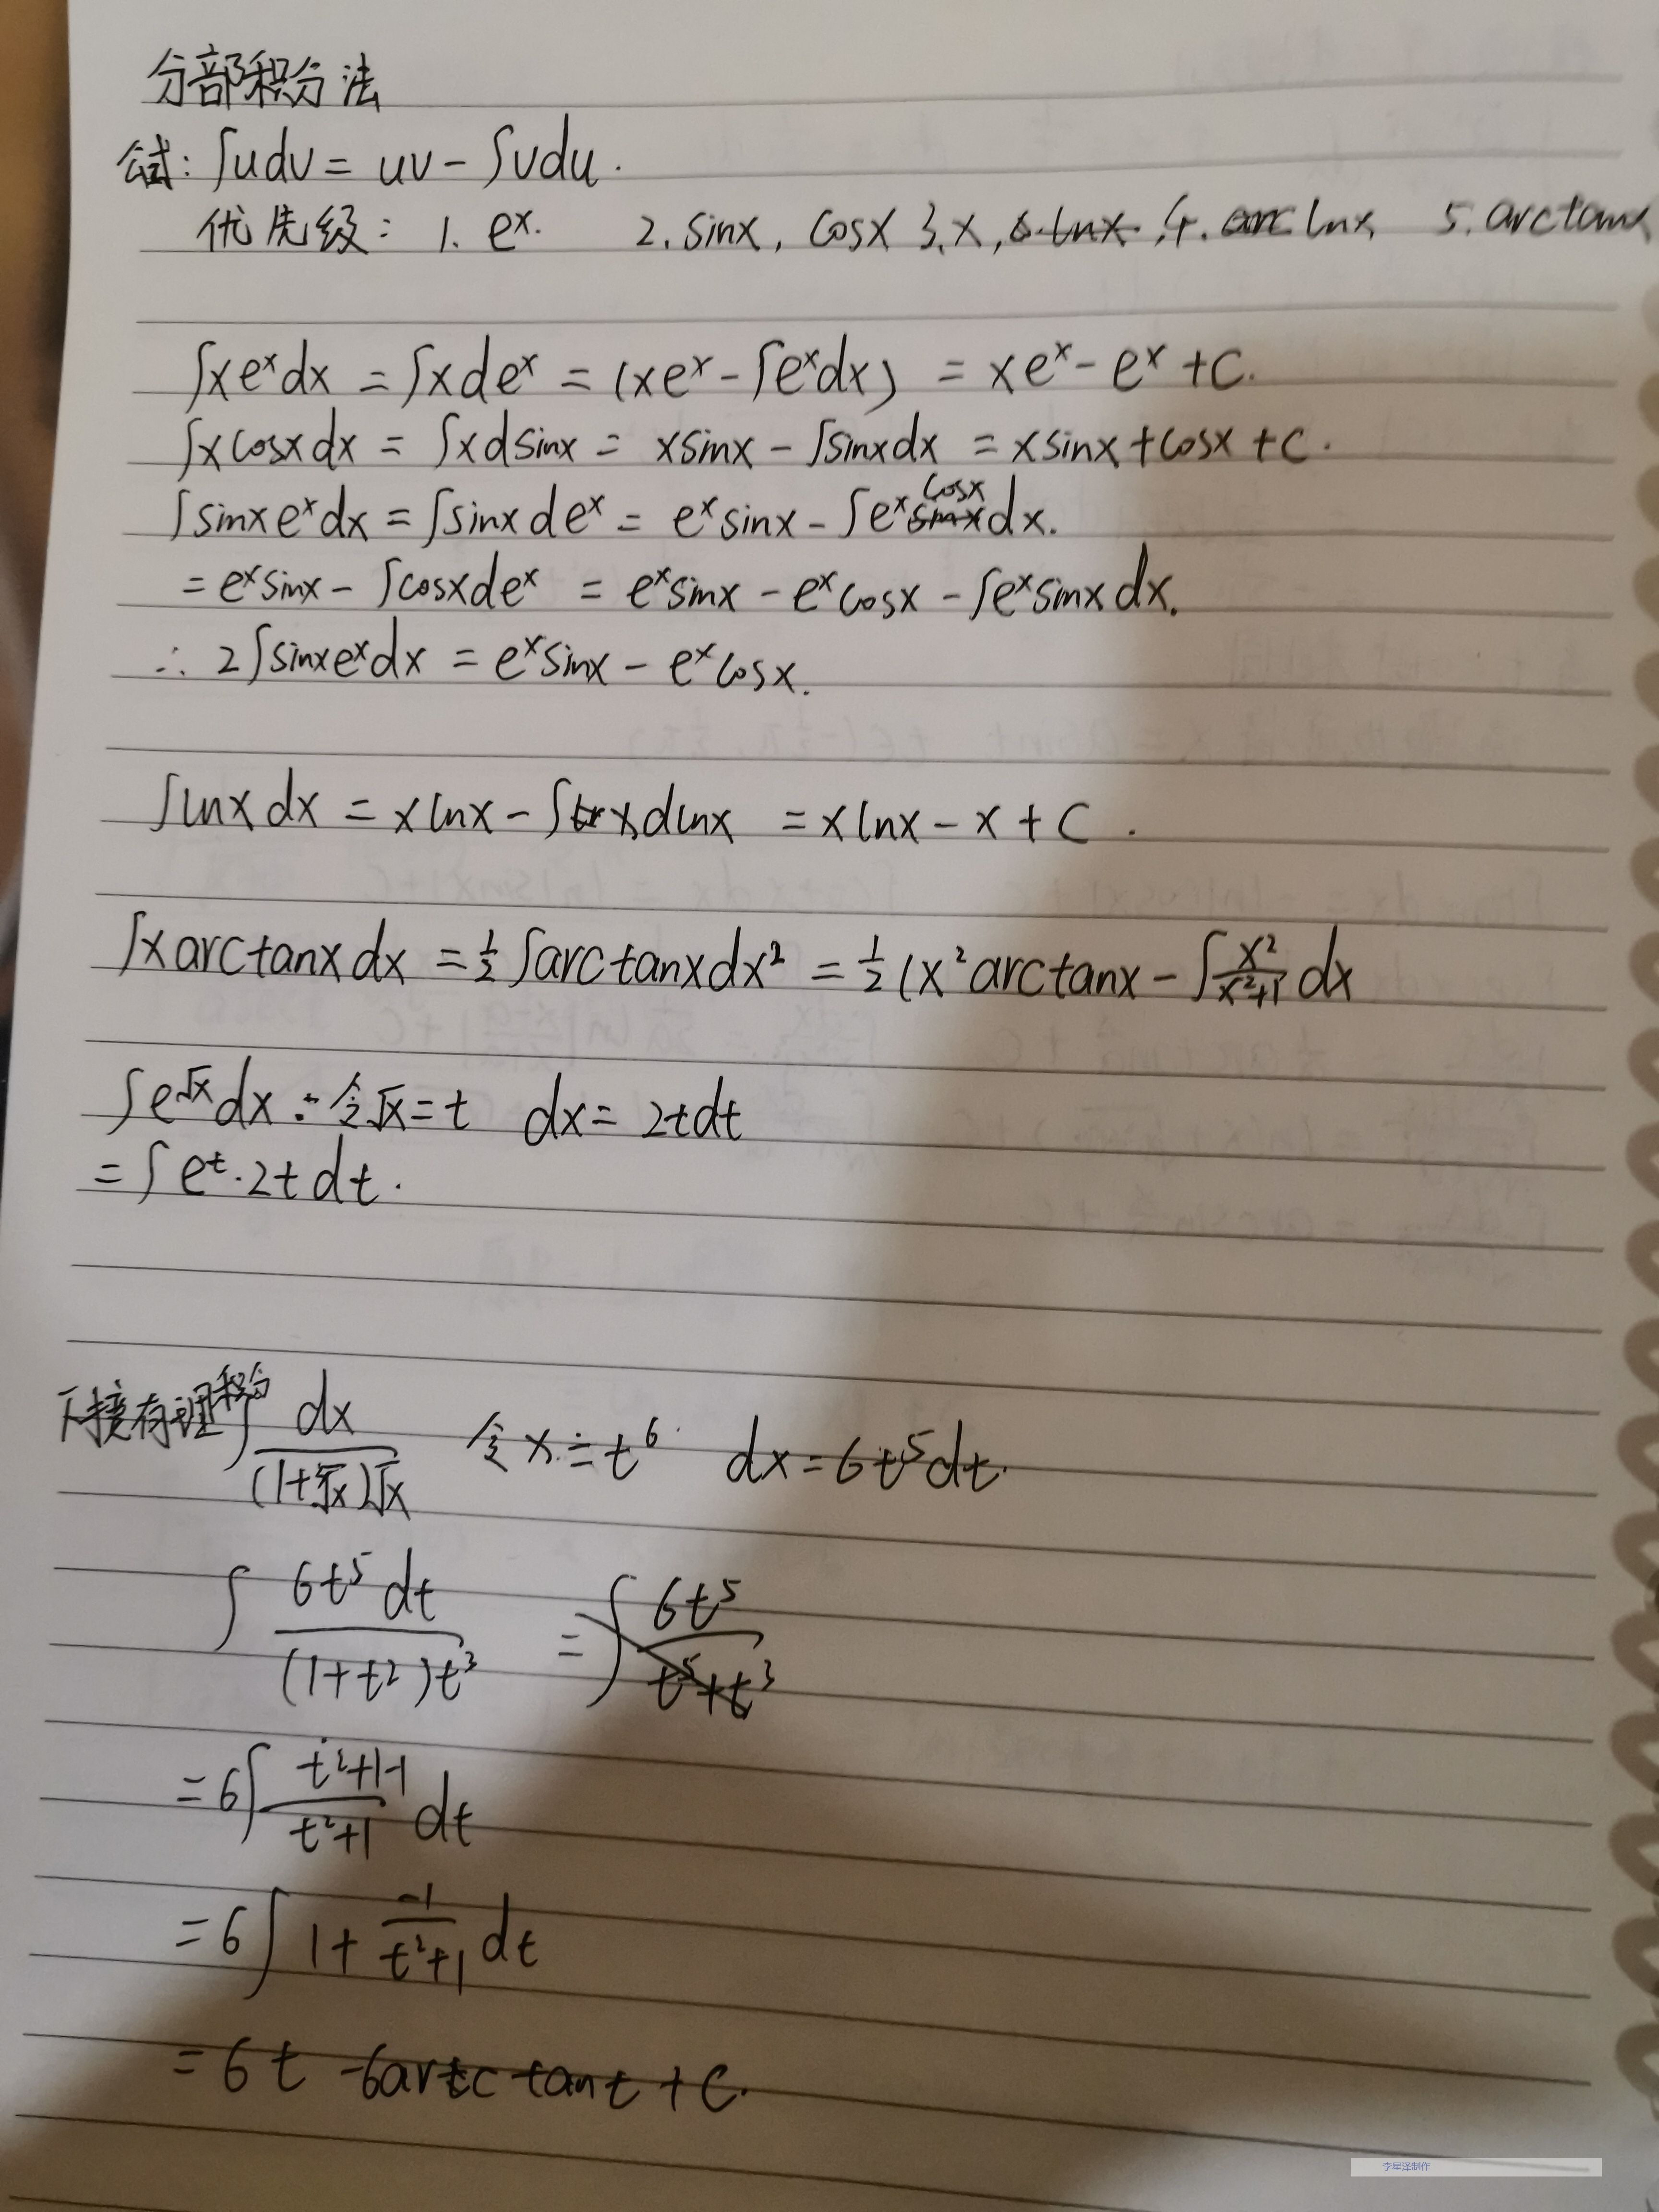 分部积分法
公式: ∫udv = uv - ∫vdu.
优先级: 1. eˣ. 2. sinx, cosx 3. x, 4. lnx, 5. arctanx
∫xeˣdx = ∫xdeˣ = (xeˣ - ∫eˣdx) = xeˣ - eˣ + C.
∫xcosxdx = ∫xdsinx = xsinx - ∫sinxdx = xsinx + cosx + C.
∫sinxeˣdx = ∫sinxdeˣ = eˣsinx - ∫eˣcosxdx.
= eˣsinx - ∫cosxdeˣ = eˣsinx - eˣcosx - ∫eˣsinxdx.
∴ 2∫sinxeˣdx = eˣsinx - eˣcosx.
∫lnxdx = xlnx - ∫xdlnx = xlnx - x + C.
∫xarctanxdx = ½∫arctanxdx² = ½(x²arctanx - ∫x²/(x²+1) dx
∫e^√x dx: 令√x = t dx = 2tdt
= ∫eᵗ·2tdt.
下接有理积分 ∫dx/((1+∛x)√x) 令x = t⁶ dx = 6t⁵dt.
∫6t⁵dt/((1+t²)t³) = ∫6t⁵/(t⁵+t³)
= 6∫(t²+1-1)/(t²+1) dt
= 6∫1+(-1)/(t²+1) dt
= 6t - 6arctant + C.
李星泽制作